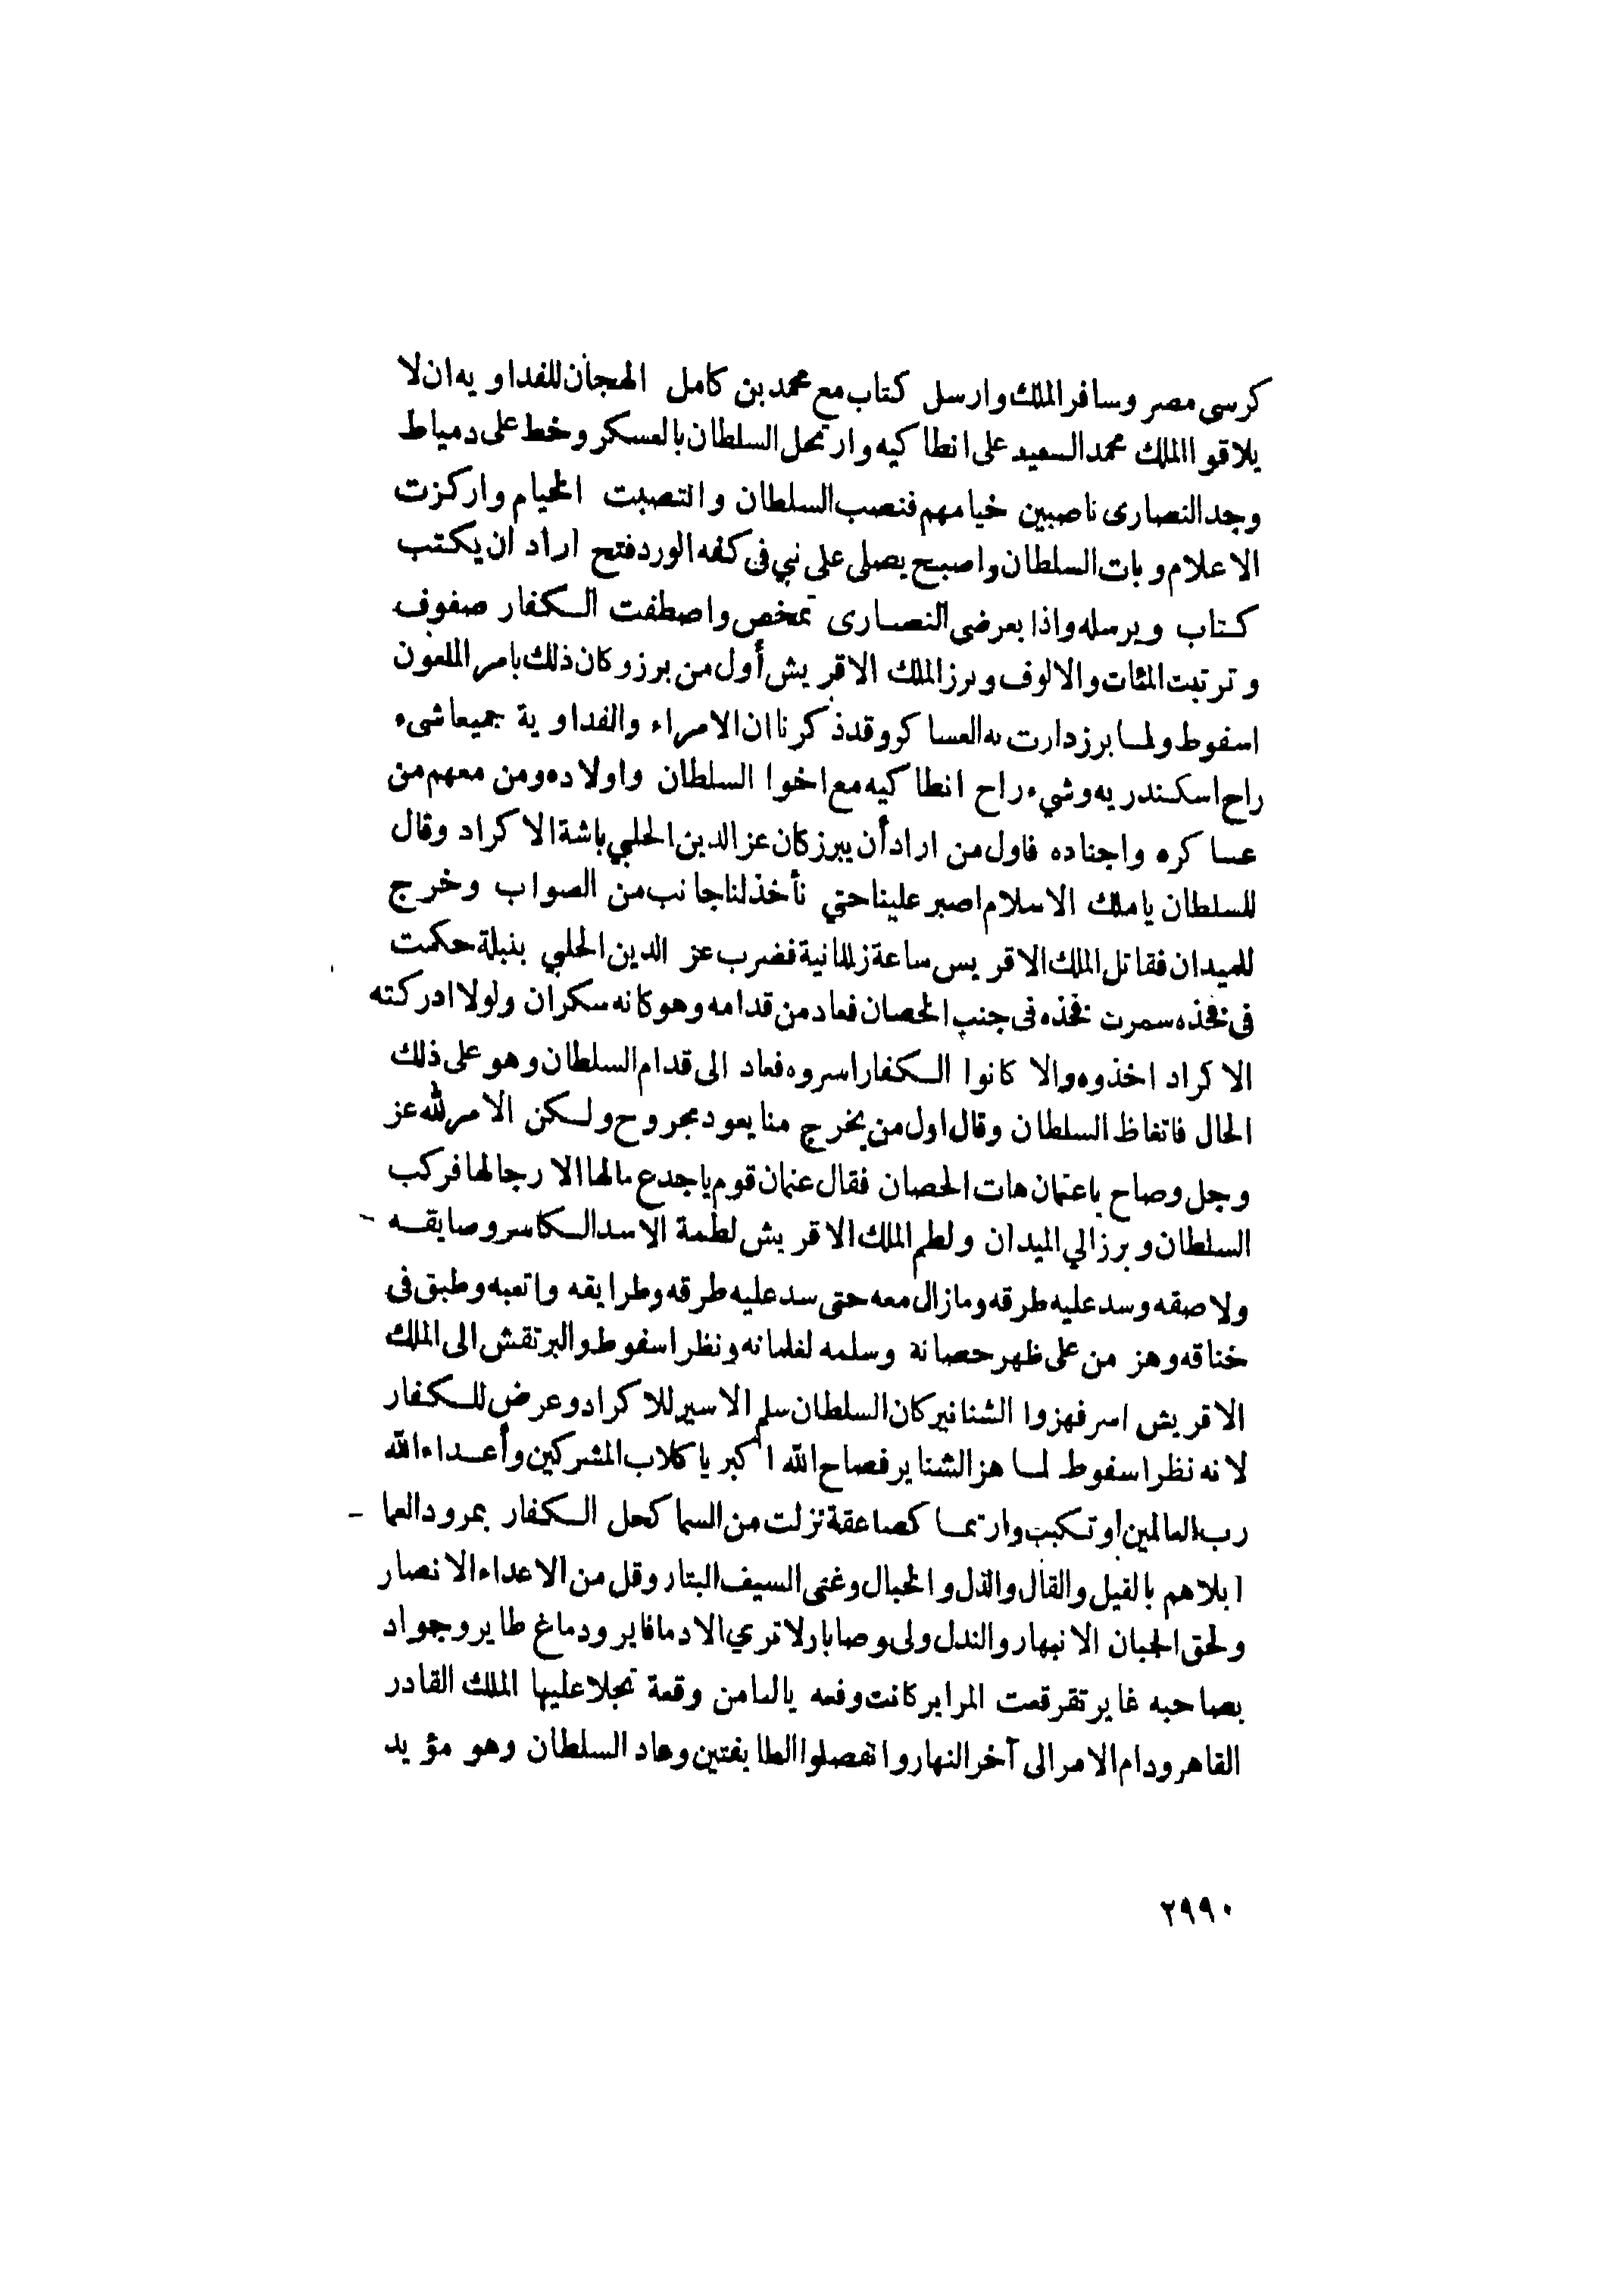 كرسى مصر وسافر الملك وارسل كتاب مع محمد بن كامل الهجان للفداويه ان لا
يلاقوا الملك محمد السعيد على انطاكيه وارتحل السلطان بالعسكر وخط على دمياط
وجد النصارى ناصبين خيامهم فنصب السلطان وانتصبت الخيام واركزت
الاعلام وبات السلطان واصبح يصلى على نبي فى كفه الورد فتح اراد ان يكتب
كتاب ويرسله واذا بعرضى النصارى تمخص واصطفت الكفار صفوف
وترتبت المئات والالوف وبرز الملك الاقريش أول من برز وكان ذلك بامر الملعون
اسفوط ولما برز دارت به العساكر وقد ذكرنا ان الامراء والفداوية جميعا شىء
راح اسكندريه وشيء راح انطاكيه مع اخوا السلطان واولاده ومن معهم من
عساكره واجناده فاول من اراد أن يبرز كان عز الدين الحلبي باشة الاكراد وقال
للسلطان ياملك الاسلام اصبر علينا حتي نأخذ لنا جانب من الصواب وخرج
للميدان فقاتل الملك الاقريس ساعة زمانية فضرب عز الدين الحلبي بنبلة حكمت
فى فخذه سمرت فخذه فى جنب الحصان فعاد من قدامه وهو كانه سكران ولولا ادركته
الاكراد اخذوه والا كانوا الكفار اسروه فعاد الى قدام السلطان وهو على ذلك
الحال فاتغاظ السلطان وقال اول من يخرج منا يعود مجروح ولكن الامر لله عز
وجل وصاح ياعتمان هات الحصان فقال عتمان قوم ياجدع مالها الا رجالها فركب
السلطان وبرز الي الميدان ولطم الملك الاقريش لطمة الاسد الكاسر وضايقه
ولاصقه وسد عليه طرقه ومازال معه حتى سد عليه طرقه وطرايقه واتعبه وطبق فى
خناقه وهز من على ظهر حصانة وسلمه لغلمانه ونظر اسفوط والبرتقش الى الملك
الاقريش اسر فهزوا الشنانير كان السلطان سلم الاسير للاكراد وعرض للكفار
لانه نظر اسفوط لما هز الشناير فصاح الله اكبر ياكلاب المشركين وأعداء الله
رب العالمين اوتكبب وارتما كصاعقة نزلت من السما كحل الكفار بمرود العما
ابلاهم بالقيل والقال والذل والخبال وغنى السيف البتار وقل من الاعداء الانصار
ولحق الجبان الانبهار والندل ولى وصابار لا تري الا دما فاير ودماغ طاير وجواد
بصاحبه غاير تقرقعت المراير كانت وقعه يالها من وقعة تجلا عليها الملك القادر
القاهر ودام الامر الى آخر النهار وانفصلوا الطايفتين وعاد السلطان وهو مؤيد
٢٩٩٠